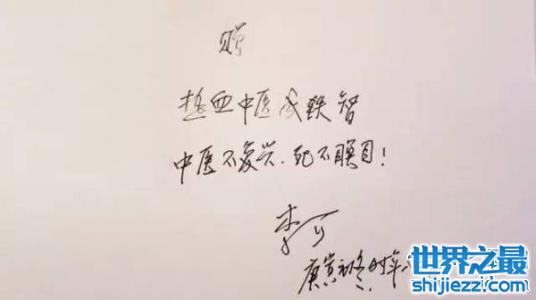 赠
热血中医成铁智
中医不复兴、死不瞑目!
李可
庚寅初冬时年
世界之最
shijiezzi.com